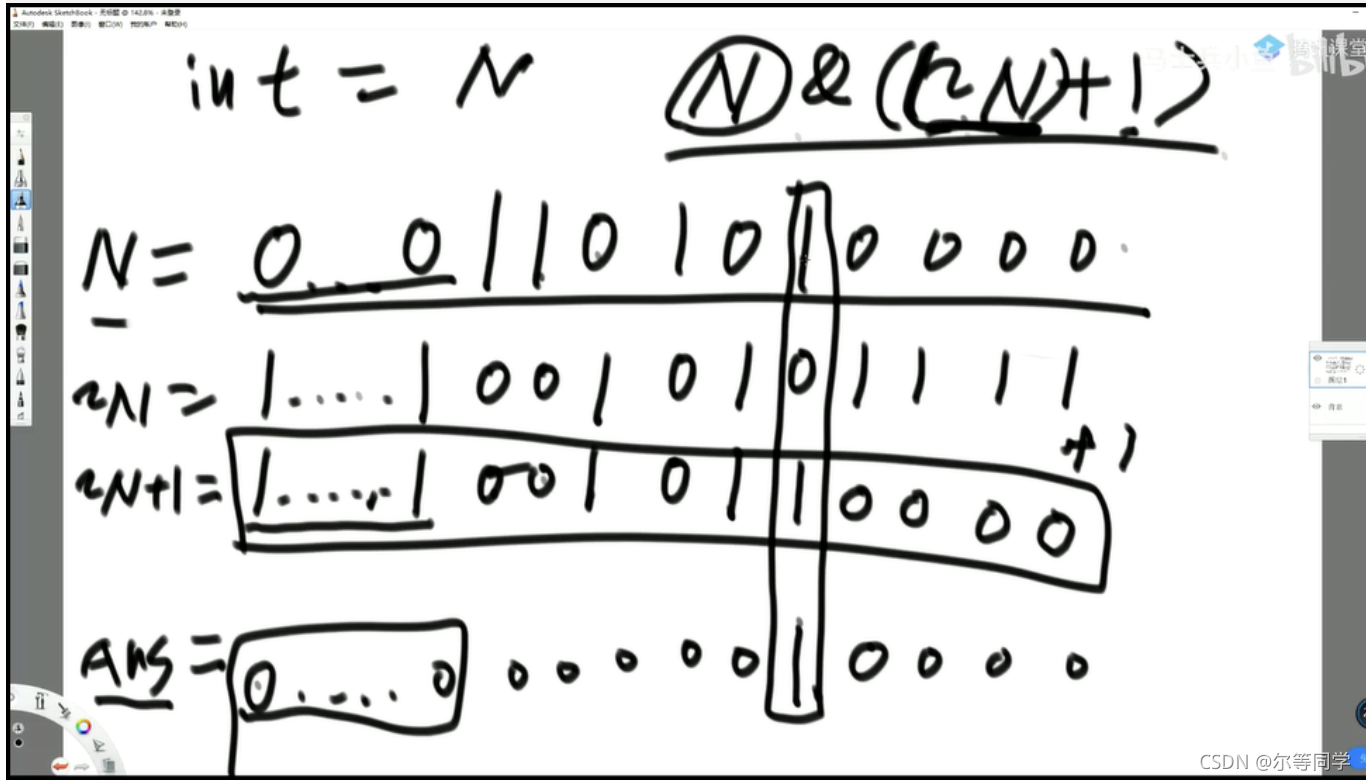 Autodesk SketchBook - 无标题 @ 142.8% - 未登录
文件(F) 编辑(E) 图像(I) 窗口(W) 我的帐户 帮助(H)
int = N N & ((~N)+1)
N = 0...0 1 1 0 1 0 1 0 0 0 0
~N = 1.....1 0 0 1 0 1 0 1 1 1 1
+1
~N+1 = 1.....1 0 0 1 0 1 1 0 0 0 0
Ans = 0....0 0 0 0 0 0 1 0 0 0 0
CSDN @尔等同学